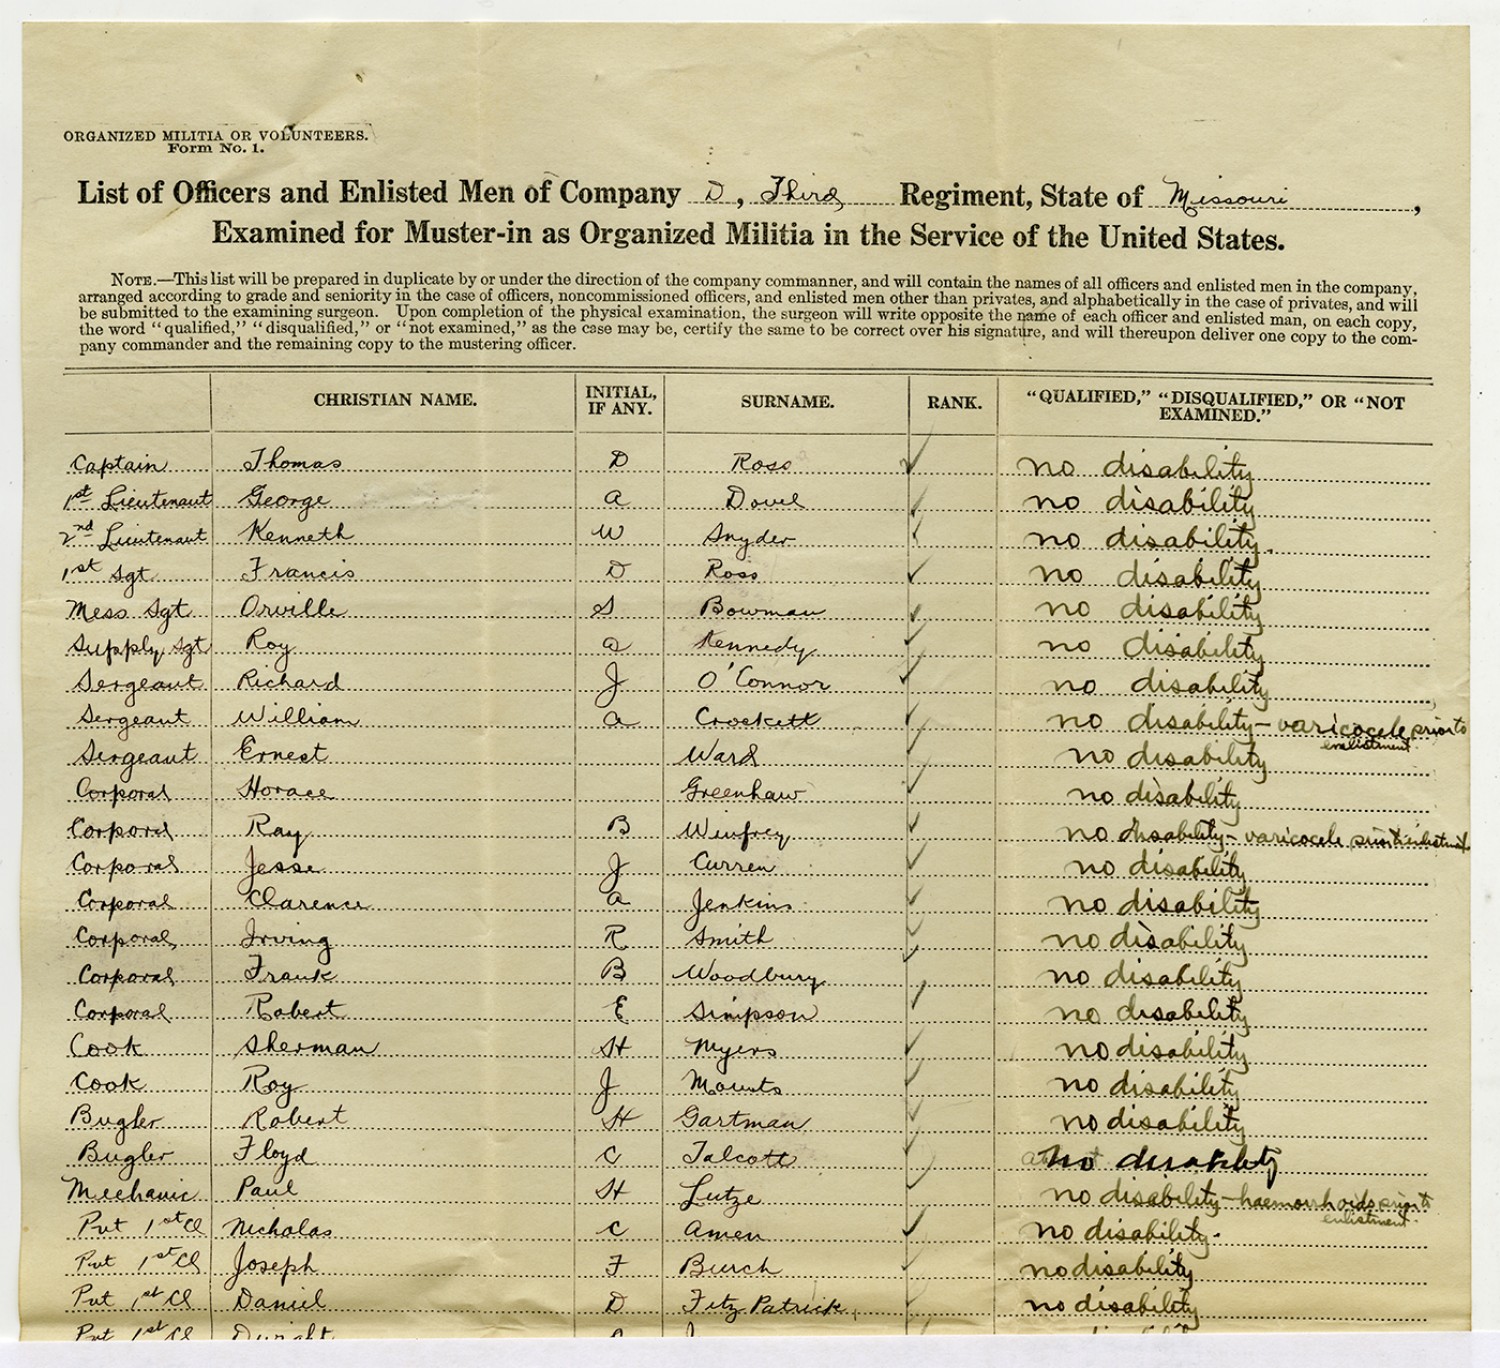 ORGANIZED MILITIA OR VOLUNTEERS.
Form No. 1.
List of Officers and Enlisted Men of Company D, Third Regiment, State of Missouri,
Examined for Muster-in as Organized Militia in the Service of the United States.
NOTE.—This list will be prepared in duplicate by or under the direction of the company commanner, and will contain the names of all officers and enlisted men in the company,
arranged according to grade and seniority in the case of officers, noncommissioned officers, and enlisted men other than privates, and alphabetically in the case of privates, and will
be submitted to the examining surgeon. Upon completion of the physical examination, the surgeon will write opposite the name of each officer and enlisted man, on each copy,
the word "qualified," "disqualified," or "not examined," as the case may be, certify the same to be correct over his signature, and will thereupon deliver one copy to the com-
pany commander and the remaining copy to the mustering officer.
CHRISTIAN NAME. INITIAL, IF ANY. SURNAME. RANK. "QUALIFIED," "DISQUALIFIED," OR "NOT EXAMINED."
Captain Thomas D Ross ✓ no disability
1st Lieutenant George A Dovel ✓ no disability
2nd Lieutenant Kenneth W Snyder ✓ no disability.
1st Sgt Francis D Ross ✓ no disability
Mess Sgt Orville S Bowman ✓ no disability
Supply Sgt Roy A Kennedy ✓ no disability
Sergeant Richard J O'Connor ✓ no disability
Sergeant William A Crockett ✓ no disability - varicocele prior to enlistment
Sergeant Ernest Ward ✓ no disability
Corporal Horace Greenhaw ✓ no disability
Corporal Ray B Winfrey ✓ no disability - varicocele prior to enlistment
Corporal Jesse J Curren ✓ no disability
Corporal Clarence A Jenkins ✓ no disability
Corporal Irving R Smith ✓ no disability
Corporal Frank B Woodbury ✓ no disability
Corporal Robert E Simpson ✓ no disability
Cook Sherman H Myers ✓ no disability
Cook Roy J Mounts ✓ no disability
Bugler Robert H Gartman ✓ no disability
Bugler Floyd C Talcott ✓ no disability
Mechanic Paul H Lutze ✓ no disability - haemorrhoids prior to enlistment
Pvt 1st Cl Nicholas C Amen ✓ no disability.
Pvt 1st Cl Joseph F Burch ✓ no disability
Pvt 1st Cl Daniel D Fitz Patrick ✓ no disability
Pvt 1st Cl Dwight